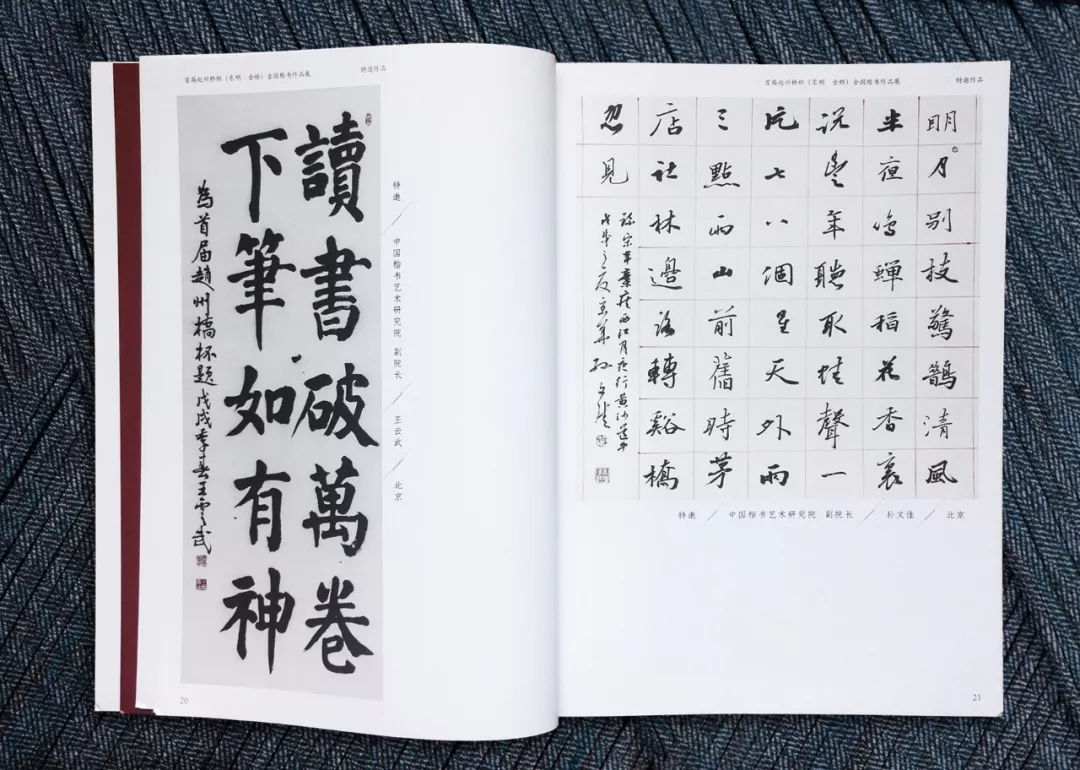 首届赵州桥杯（东明·金桥）全国楷书作品展 特邀作品
讀書破萬卷
下筆如有神
為首届趙州橋杯题 戊戌季春王雲武
特邀／中国楷书艺术研究院 副院长／王云武／北京
20
首届赵州桥杯（东明·金桥）全国楷书作品展 特邀作品
明月别枝驚鵲清風
半夜鳴蟬稻花香裏
説豐年聽取蛙聲一
片七八個星天外兩
三點雨山前舊時茅
店社林邊路轉谿橋
忽見
録宋辛棄疾西江月夜行黄沙道中
戊戌之夏京華孫文佳
特邀／中国楷书艺术研究院 副院长／孙文佳／北京
21